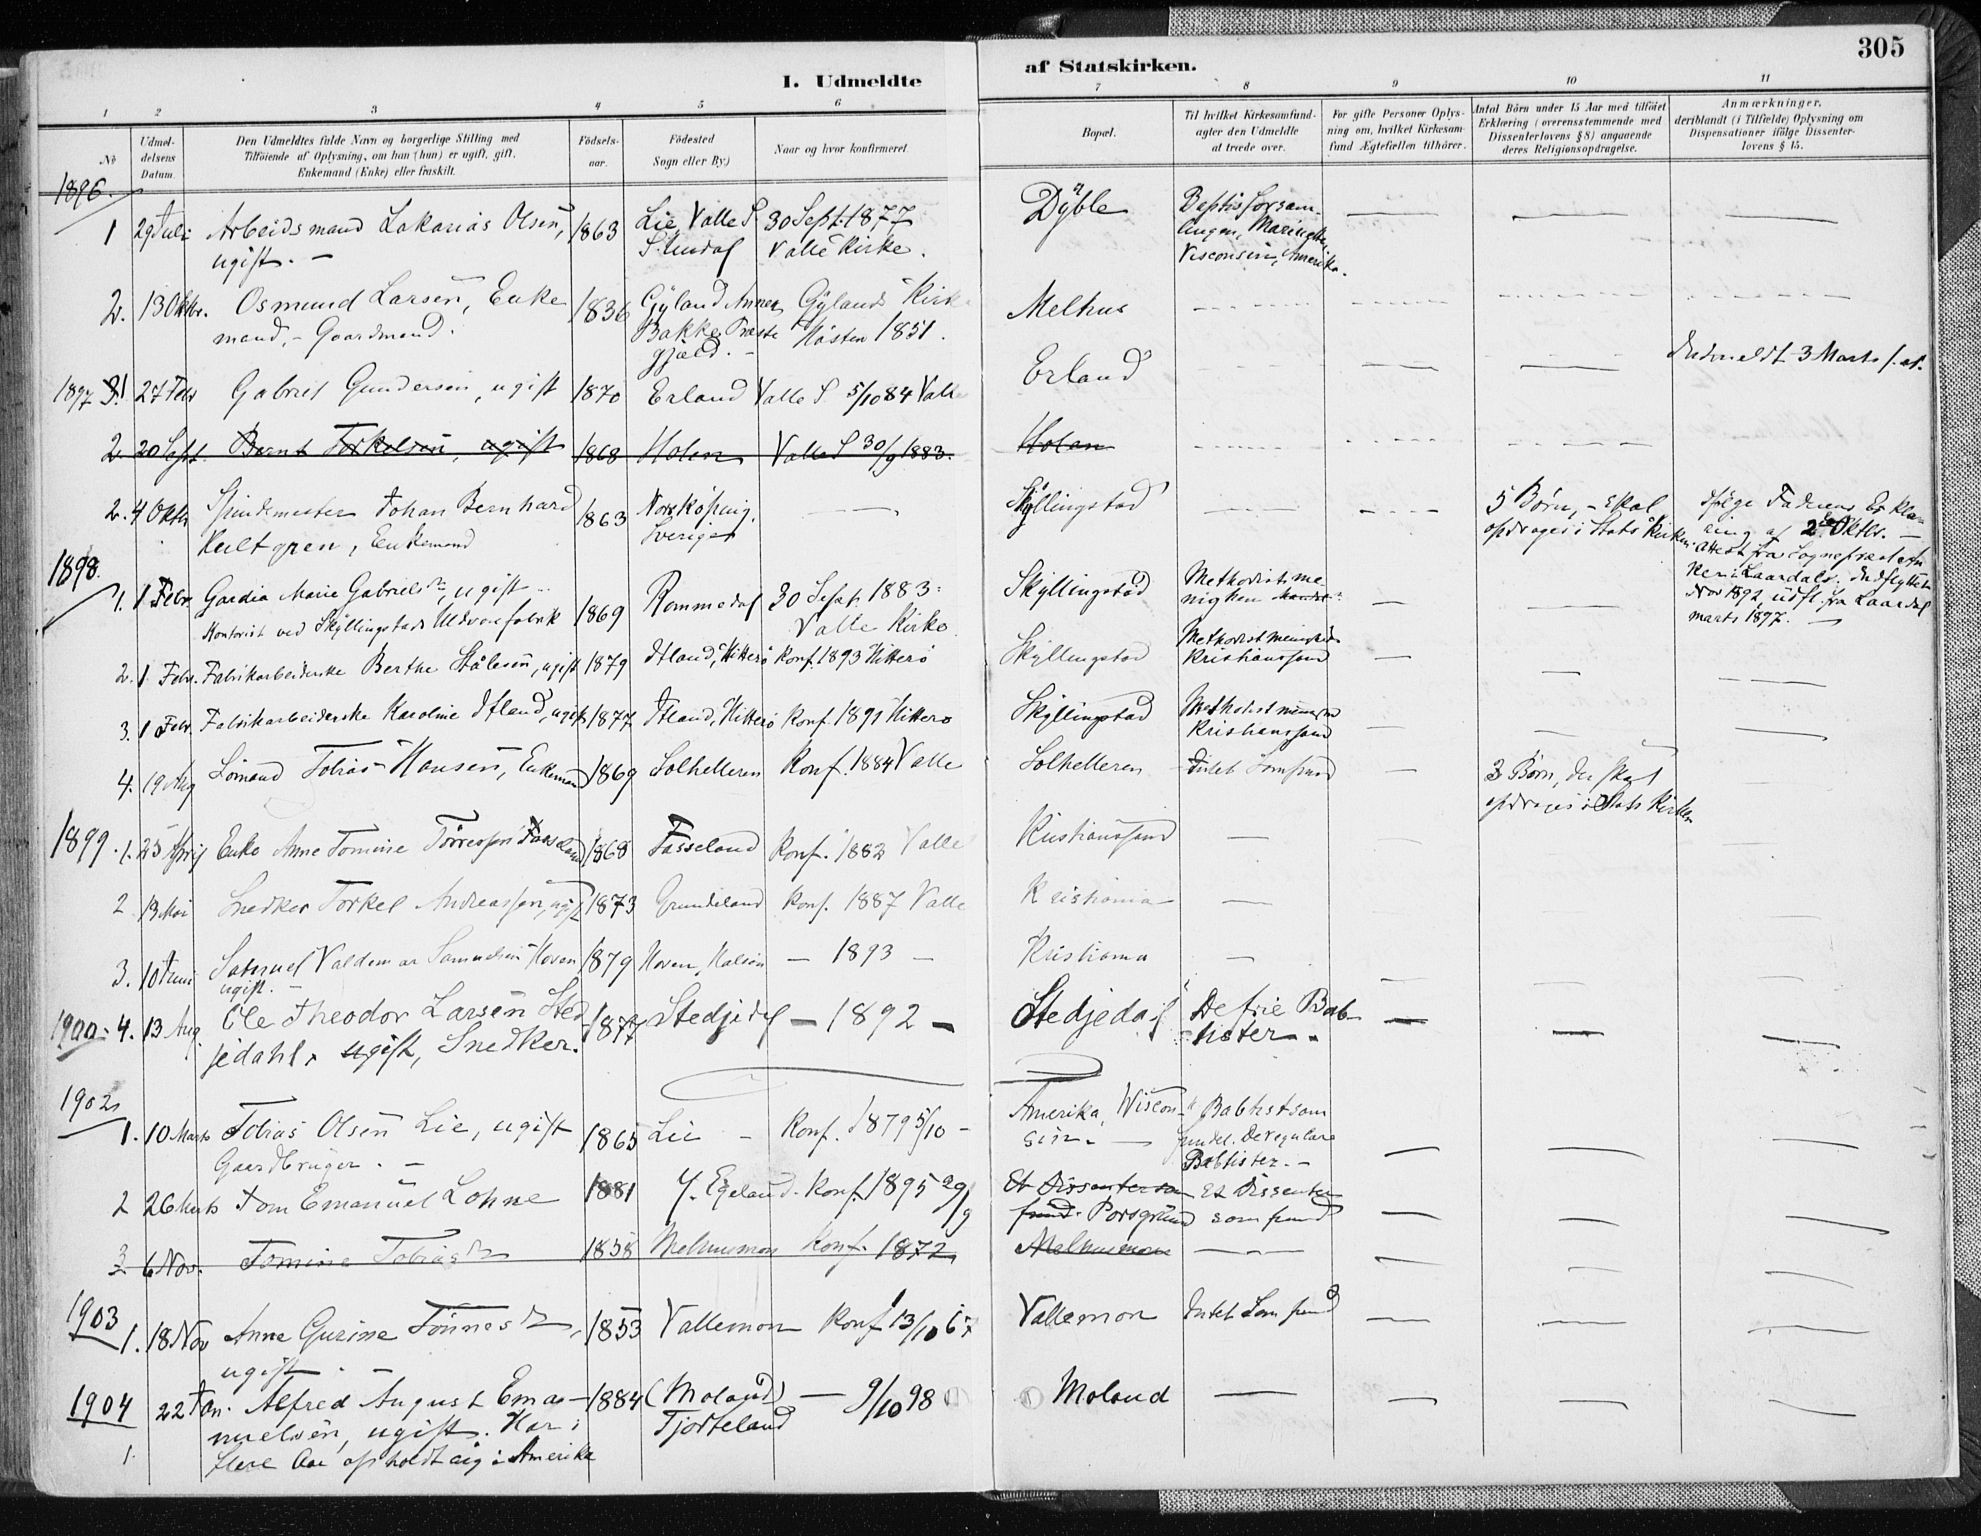 305
1. Udmeldte af Statskirken.
1 2 3 4 5 6 7 8 9 10 11
No
Udmel-
delsens
Datum.
Den Udmeldtes fulde Navn og borgerlige Stilling med
Tilføiende af Oplysning, om han (hun) er ugift, gift,
Enkemand (Enke) eller fraskilt.
Fødsels-
aar.
Fødested
Sogn eller By)
Naar og hvor konfirmeret.
Bopæl.
Til hvilket Kirkesamfund
agter den Udmeldte
at træde over.
For gifte Personer Oplys-
ning om, hvilket Kirkesam-
fund Ægtefællen tilhører.
Antal Børn under 15 Aar med tilføiet
Erklæring (overensstemmende med
Dissenterlovens § 8) angaaende
deres Religionsopdragelse.
Anmærkninger,
deriblandt (i Tilfælde) Oplysning om
Dispensationer ifølge Dissenter-
lovens § 15.
1896.
1 29 Juli Arbeidsmand Zakarias Olsen, 1863 Lie, Valle S 30 Sept. 1877 Dÿble Baptistforsam-
ugift. — S. Undal Valle Kirke. lingen,
Visconsin, Amerika.
2. 13 Oktbr. Osmund Larsen, Enke 1836 Gÿland Annex Gÿlands Kirke Melhus
mand, - Gaardmand. Bakke Præste Høsten 1851.
gjæld. —
1897 1 27 Febr Gabriel Gundersen, ugift 1870 Erland Valle S 5/10 84 Valle Erland Indmeldt 3 Marts
2 20 Sept. Bernt Torkelsen, ugift 1868 Holan Valle S 30/9 1883. Holan
2. 4 Oktbr Spindemester Johan Bernhard 1863 Norrköping. Skÿllingstad 5 Børn, - skal Ifølge Faderens Erklæ-
Hultgren, Enkemand Sverige opdrages i Stats Kirken. ring af 2 Oktbr. —
Attest fra Sognepræsten
Laardal. Indflyttet
Nov 1892 udfl. fra Laardal
marts 1897. —
1898.
1. 1 Febr. Gardia Marie Gabriels, ugift 1869 Rommedal 30 Sept. 1883 Skÿllingstad Methodistme
Kontorist ved Skÿllingstads Uldvarefabrik Valle Kirke nigheden
2. 1 Febr. Fabrikarbeiderske Berthe Stålesen, ugift 1879 Itland, Hitterø Konf. 1893 Hitterø Skÿllingstad Methodistmenighed
Kristianssand
3. 1 Febr. Fabrikarbeiderske Karoline Itland, ugift 1877 Itland, Hitterø Konf. 1891 Hitterø Skÿllingstad Methodistmenighed
Kristianssand
4. 19 Aug Sømand Tobias Hansen, Enkemand 1869 Solhelleren Konf. 1884 Valle Solhelleren Intet Samfund 3 Børn, der skal
opdrages i Stats Kirken
1899. 1. 25 April Enke Anne Tomine Tørresen Fasseland 1868 Fasseland Konf. 1882 Valle Kristianssand
2 13 Mai Snedker Torkel Andreassen, ugift 1873 Grundeland Konf. 1887 Valle Kristiania
3. 10 Juni Samuel Valdemar Samuelsen Hoven 1879 Hoven, Halsøen — 1893 — Kristiania
ugift. —
1900. 4. 13 Aug Ole Theodor Larsen Sted- 1877 Stedjedal — 1892 — Stedjedal De frie Bab-
jedahl, ugift, Snedker. tister.
1902
1. 10 Marts Tobias Olsen Lie, ugift 1865 Lie — Konf. 1879 5/10 — Amerika, Wiscon- Babtistsam
Gaardbruger. — sin. — fundet. De regulære
Babtister. —
2 26 Marts Tom Emanuel Lohne 1881 Y. Egeland. Konf. 1895 29/9 Et Dissentersam Et Dissenter
fund. Porsgrund samfund
3 6 Nov. Tomine Tobias 1858 Melhusmon Konf. 1872 Melhusmon
1903
1. 18 Nov Anne Gurine Tønnes, 1853 Vallemon Konf 13/10 67 Vallemon Intet Samfund
ugift. —
1904 22 Jan. Alfred August Ema- 1884 (Moland) — 9/10 98 Moland
nuelsen, ugift. Har i Tjorteland
1. flere Aar opholdt sig i Amerika